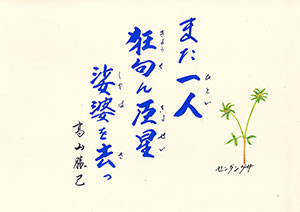 また一人
ひとい
狂句ん巨星
きょうく きょせい
娑婆を去っ
しゃば さ
高山勝己
センダングサ